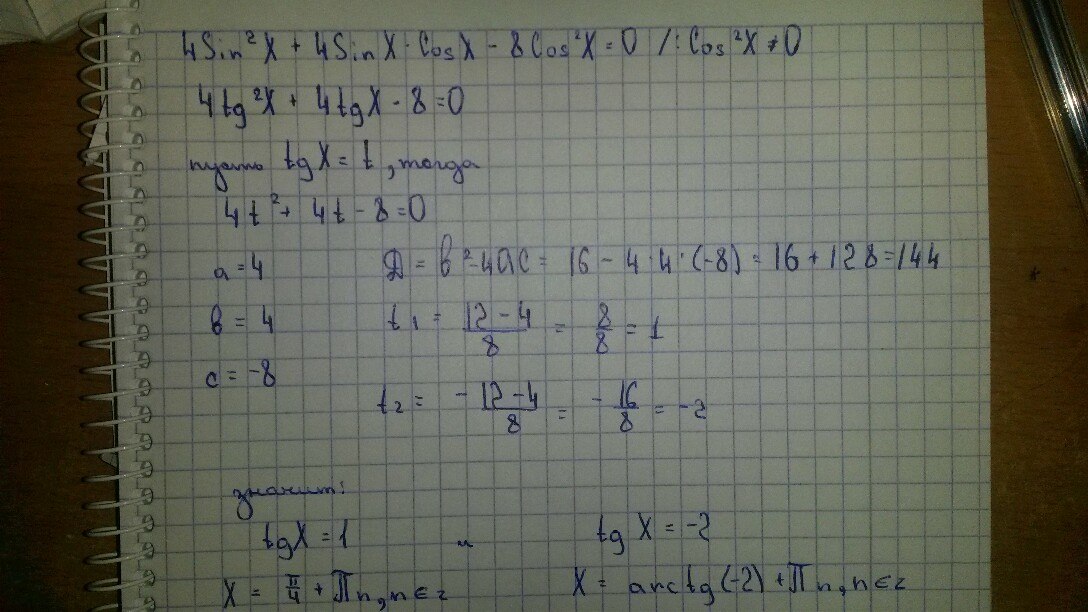 4Sin²X + 4SinX·CosX - 8Cos²X = 0 /: Cos²X ≠ 0
4tg²X + 4tgX - 8 = 0
пусть tgX = t, тогда
4t² + 4t - 8 = 0
a = 4 D = b² - 4ac = 16 - 4·4·(-8) = 16 + 128 = 144
b = 4 t₁ = (12 - 4)/8 = 8/8 = 1
c = -8
t₂ = (-12 - 4)/8 = -16/8 = -2
значит:
tgX = 1 и tgX = -2
X = π/4 + πn, n∈z X = arctg(-2) + πn, n∈z